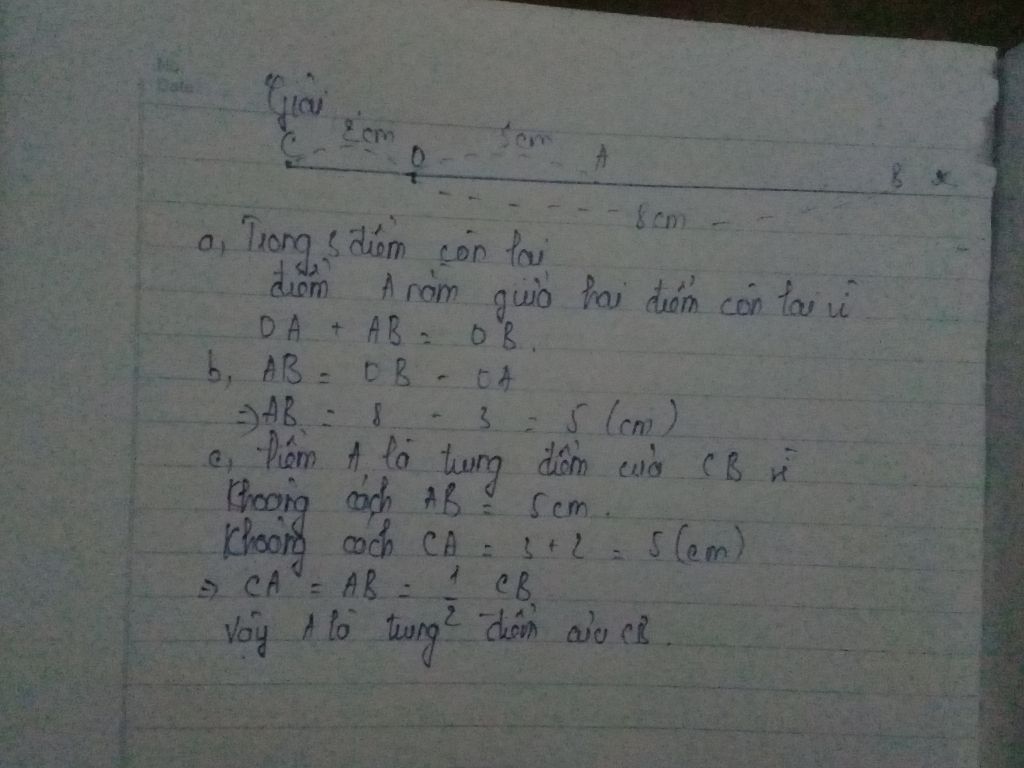 No.
Date
Giải
C 2cm O 3cm A B x
8cm
a, Trong 3 điểm còn lại
điểm A nằm giữa hai điểm còn lại vì
OA + AB = OB.
b, AB = OB - OA
=> AB = 8 - 3 = 5 (cm)
c, Điểm A là trung điểm của CB vì
Khoảng cách AB = 5cm.
Khoảng cách CA = 3 + 2 = 5 (cm)
=> CA = AB = 1/2 CB
Vậy A là trung điểm của CB.